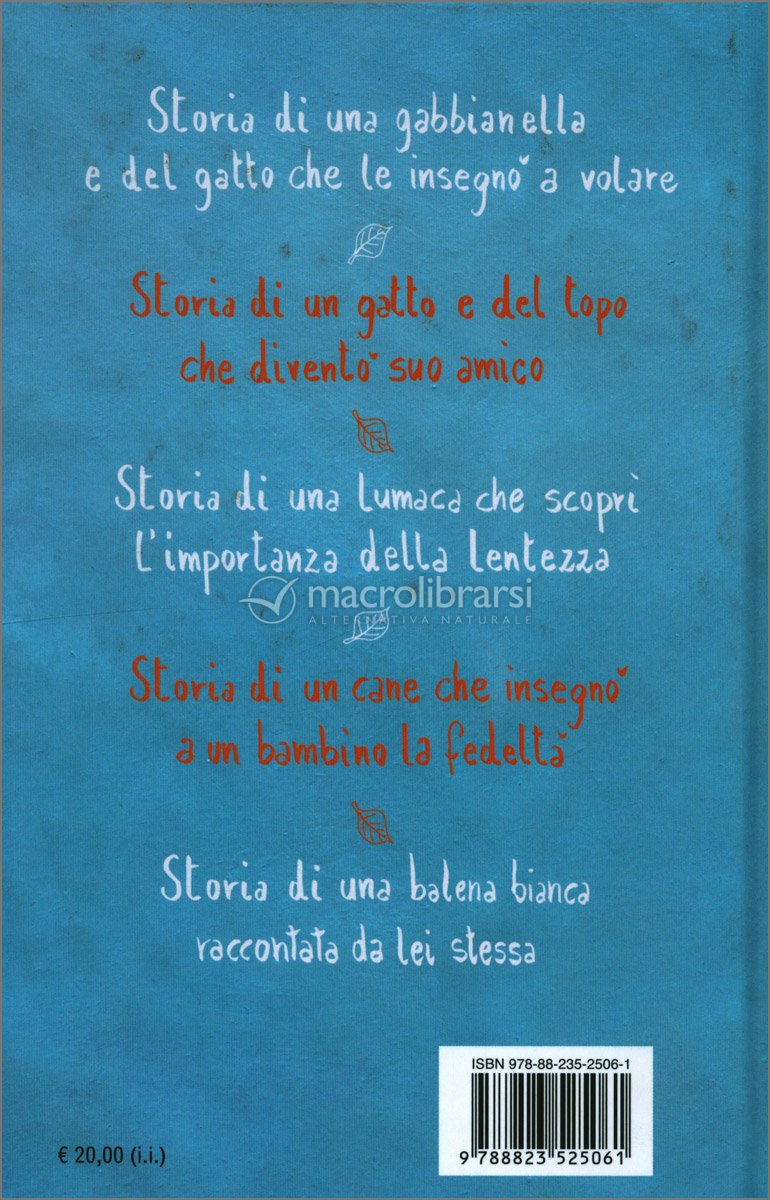 Storia di una gabbianella
e del gatto che le insegnò a volare
Storia di un gatto e del topo
che diventò suo amico
Storia di una lumaca che scoprì
l'importanza della lentezza
macrolibrarsi
ALTERNATIVA NATURALE
Storia di un cane che insegnò
a un bambino la fedeltà
Storia di una balena bianca
raccontata da lei stessa
ISBN 978-88-235-2506-1
9 788823 525061
€ 20,00 (i.i.)